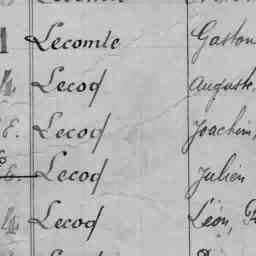 1 Lecomte Gaston
4 Lecoq Auguste,
E. Lecoq Joachim,
E. Lecoq Julien
4 Lecoq Léon, F